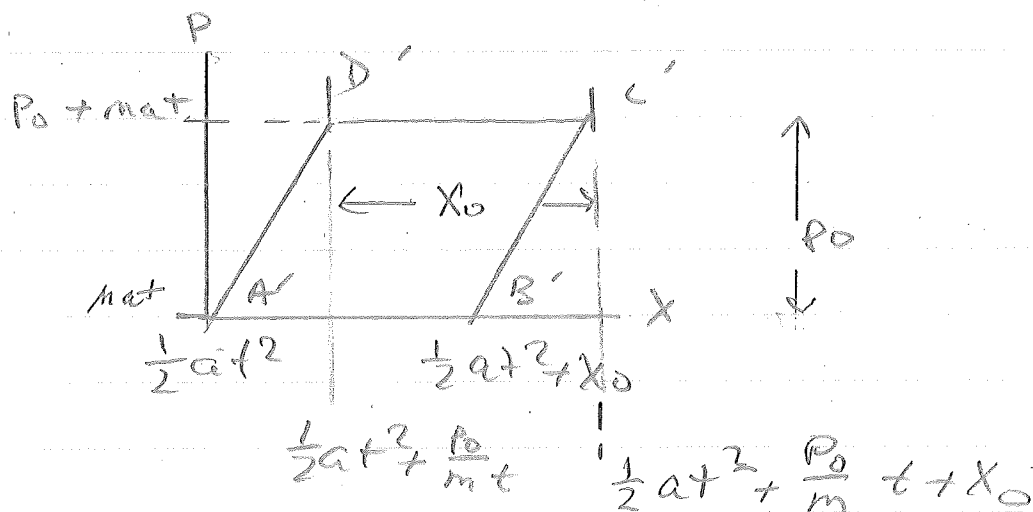 P
D′ C′
P₀ + mat
← X₀ →
P₀
mat A′ B′ X
½at² ½at² + X₀
½at² + P₀/m t
½at² + P₀/m t + X₀